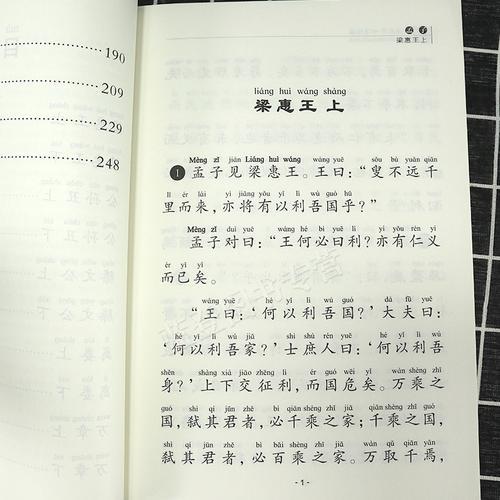 190
209
229
248
孟子
梁惠王上
liáng huì wáng shàng
梁惠王上
Mèng zǐ jiàn Liáng huì wáng wáng yuē sǒu bù yuǎn qiān
1 孟子见梁惠王。王曰：“叟不远千
lǐ ér lái yì jiāng yǒu yǐ lì wú guó hū
里而来，亦将有以利吾国乎？”
Mèng zǐ duì yuē wáng hé bì yuē lì yì yǒu rén yì
孟子对曰：“王何必曰利？亦有仁义
ér yǐ yǐ
而已矣。
wáng yuē hé yǐ lì wú guó dà fū yuē
“王曰：‘何以利吾国？’大夫曰：
hé yǐ lì wú jiā shì shù rén yuē hé yǐ lì wú
‘何以利吾家？’士庶人曰：‘何以利吾
shēn shàng xià jiāo zhēng lì ér guó wēi yǐ wàn shèng zhī
身？’上下交征利，而国危矣。万乘之
guó shì qí jūn zhě bì qiān shèng zhī jiā qiān shèng zhī guó
国，弑其君者，必千乘之家；千乘之国，
shì qí jūn zhě bì bǎi shèng zhī jiā wàn qǔ qiān yān
弑其君者，必百乘之家。万取千焉，
- 1 -